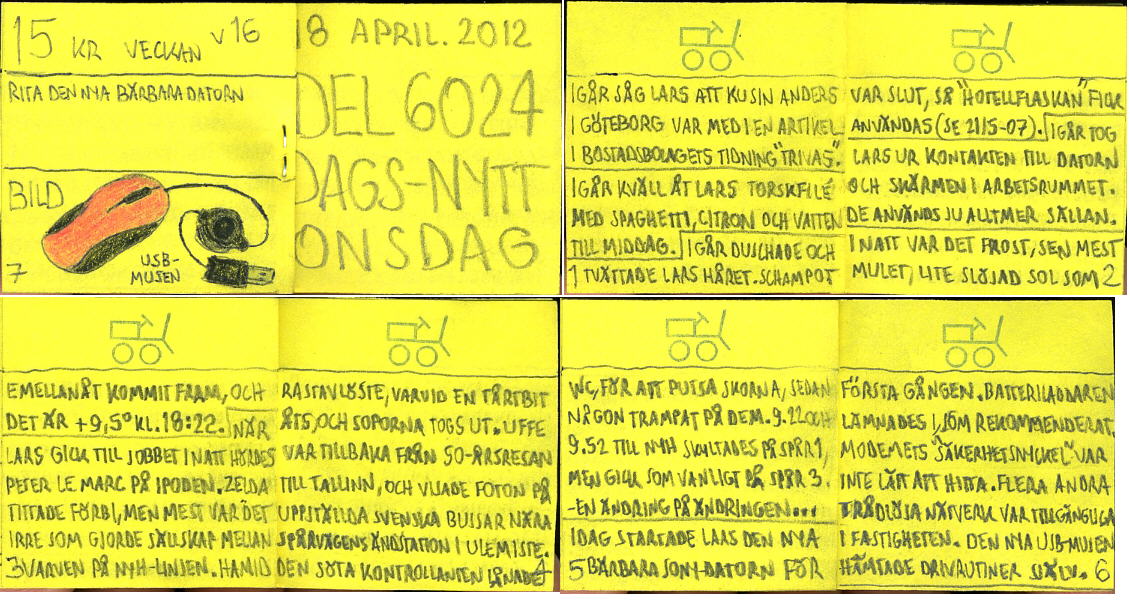 15 KR VECKAN V16
RITA DEN NYA BÄRBARA DATORN
BILD
USB-
MUSEN
7
18 APRIL. 2012
DEL 6024
DAGS-NYTT
ONSDAG
IGÅR SÅG LARS ATT KUSIN ANDERS
I GÖTEBORG VAR MED I EN ARTIKEL
I BOSTADSBOLAGETS TIDNING "TRIVAS".
IGÅR KVÄLL ÅT LARS TORSKFILÉ
MED SPAGHETTI, CITRON OCH VATTEN
TILL MIDDAG. IGÅR DUSCHADE OCH
1 TVÄTTADE LARS HÅRET. SCHAMPOT
VAR SLUT, SÅ "HOTELLFLASKAN" FICK
ANVÄNDAS (SE 21/5-07). IGÅR TOG
LARS UR KONTAKTEN TILL DATORN
OCH SKÄRMEN I ARBETSRUMMET.
DE ANVÄNDS JU ALLTMER SÄLLAN.
I NATT VAR DET FROST, SEN MEST
MULET, LITE SLÖJAD SOL SOM 2
EMELLANÅT KOMMIT FRAM, OCH
DET ÄR +9,5° KL. 18:22. NÄR
LARS GICK TILL JOBBET I NATT HÖRDES
PETER LE MARC PÅ IPODEN. ZELDA
TITTADE FÖRBI, MEN MEST VAR DET
IRRE SOM GJORDE SÄLLSKAP MELLAN
3 VARVEN PÅ NYH-LINJEN. HAMID
RASTAVLÖSTE, VARVID EN TÅRTBIT
ÅTS, OCH SOPORNA TOGS UT. UFFE
VAR TILLBAKA FRÅN 50-ÅRSRESAN
TILL TALLINN, OCH VISADE FOTON PÅ
UPPSTÄLLDA SVENSKA BUSSAR NÄRA
SPÅRVÄGENS ÄNDSTATION I ULEMISTE.
DEN SÖTA KONTROLLANTEN LÅNADE 4
WC, FÖR ATT PUTSA SKORNA, SEDAN
NÅGON TRAMPAT PÅ DEM. 9.22 OCH
9.52 TILL NYH SKYLTADES PÅ SPÅR 1,
MEN GICK SOM VANLIGT PÅ SPÅR 3.
-EN ÄNDRING PÅ ÄNDRINGEN...
IDAG STARTADE LARS DEN NYA
5 BÄRBARA SONY-DATORN FÖR
FÖRSTA GÅNGEN. BATTERILADDAREN
LÄMNADES I, SOM REKOMMENDERAT.
MODEMETS "SÄKERHETSNYCKEL" VAR
INTE LÄTT ATT HITTA. FLERA ANDRA
TRÅDLÖSA NÄTVERK VAR TILLGÄNGLIGA
I FASTIGHETEN. DEN NYA USB-MUSEN
HÄMTADE DRIVRUTINER SJÄLV. 6